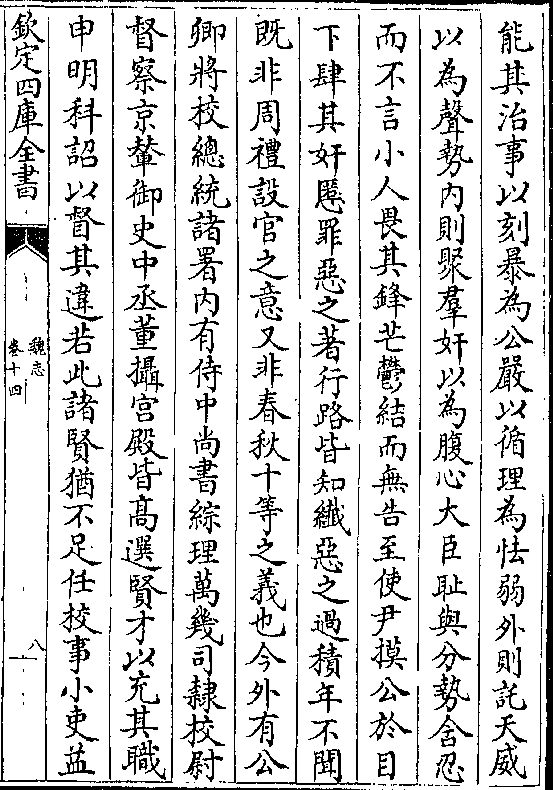 能其治事以刻暴為公嚴以循理為怯弱外則託天威
以為聲勢内則聚羣奸以為腹心大臣耻與分勢含忍
而不言小人畏其鋒芒鬱結而無告至使尹摸公於目
下肆其奸慝罪惡之著行路皆知纎惡之過積年不聞
既非周禮設官之意又非春秋十等之義也今外有公
卿將校總統諸署内有侍中尚書綜理萬幾司隸校尉
督察京輦御史中丞董攝宫殿皆髙選賢才以充其職
申明科詔以督其違若此諸賢猶不足任校事小吏益
欽定四庫全書
魏志
卷十四
八